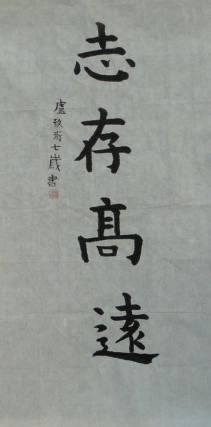 志存高遠
盧玫希七歲書